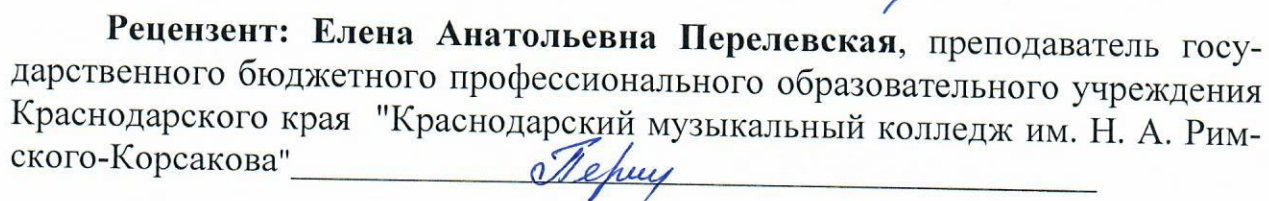 Рецензент: Елена Анатольевна Перелевская, преподаватель госу-
дарственного бюджетного профессионального образовательного учреждения
Краснодарского края "Краснодарский музыкальный колледж им. Н. А. Рим-
ского-Корсакова"